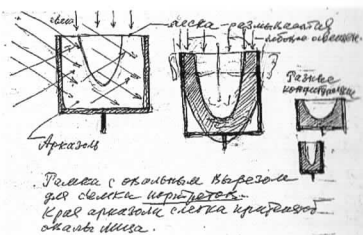 свет
леска размывается
лобовое освещен.
Разные
конфигурации
Арказоль
Рамка с овальным вырезом
для съемки портретов.
Края арказоля слегка
овалы лица.